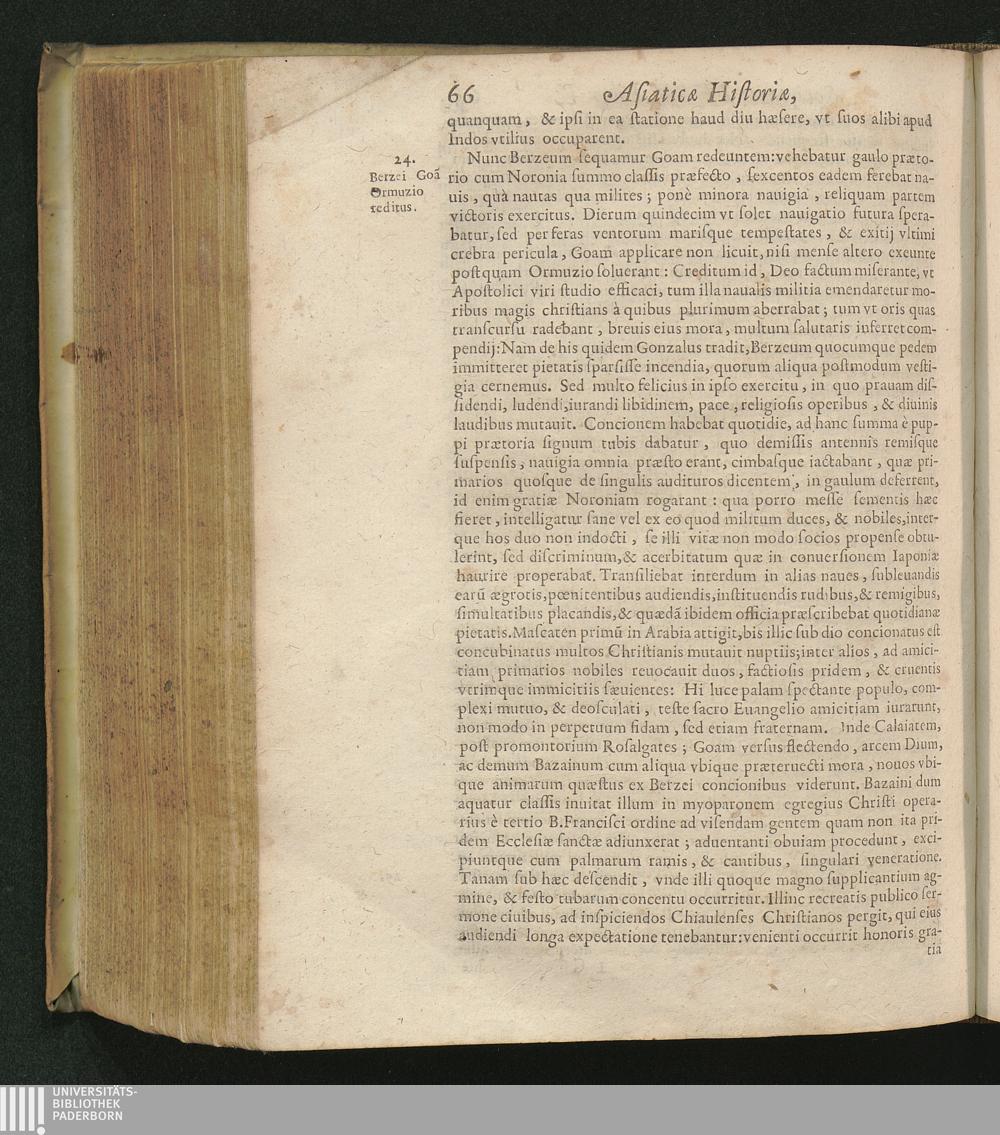 66 Asiaticæ Historiæ,
quanquam, & ipsi in ea statione haud diu hæsere, vt suos alibi apud
Indos vtilius occuparent.
24.
Berzei Goã
Ormuzio
reditus.
Nunc Berzeum sequamur Goam redeuntem: vehebatur gaulo præto-
rio cum Noronia summo classis præfecto, sexcentos eadem ferebat na-
uis, quà nautas qua milites; ponè minora nauigia, reliquam partem
victoris exercitus. Dierum quindecim vt solet nauigatio futura spera-
batur, sed per feras ventorum marisque tempestates, & exitij vltimi
crebra pericula, Goam applicare non licuit, nisi mense altero exeunte
postquam Ormuzio soluerant: Creditum id, Deo factum miserante, vt
Apostolici viri studio efficaci, tum illa naualis militia emendaretur mo-
ribus magis christians à quibus plurimum aberrabat; tum vt oris quas
transcursu radebant, breuis eius mora, multum salutaris inferret com-
pendij: Nam de his quidem Gonzalus tradit, Berzeum quocumque pedem
immitteret pietatis sparsisse incendia, quorum aliqua postmodum vesti-
gia cernemus. Sed multo felicius in ipso exercitu, in quo prauam dis-
sidendi, ludendi, iurandi libidinem, pace, religiosis operibus, & diuinis
laudibus mutauit. Concionem habebat quotidie, ad hanc summa è pup-
pi prætoria signum tubis dabatur, quo demissis antennis remisque
suspensis, nauigia omnia præsto erant, cimbasque iactabant, quæ pri-
marios quosque de singulis audituros dicentem, in gaulum deferrent,
id enim gratiæ Noroniam rogarant: qua porro messe sementis hæc
fieret, intelligatur sane vel ex eo quod militum duces, & nobiles, inter-
que hos duo non indocti, se illi vitæ non modo socios propense obtu-
lerint, sed discriminum, & acerbitatum quæ in conuersionem Iaponiæ
haurire properabat. Transiliebat interdum in alias naues, subleuandis
earũ ægrotis, pœnitentibus audiendis, instituendis rudibus, & remigibus,
simultatibus placandis, & quædã ibidem officia præscribebat quotidianæ
pietatis. Mascaten primũ in Arabia attigit, bis illic sub dio concionatus est
concubinatus multos Christianis mutauit nuptiis; inter alios, ad amici-
tiam primarios nobiles reuocauit duos, factiosis pridem, & cruentis
vtrimque immicitiis sæuientes: Hi luce palam spectante populo, com-
plexi mutuo, & deosculati, teste sacro Euangelio amicitiam iurarunt,
non modo in perpetuum fidam, sed etiam fraternam. Inde Calaiatem,
post promontorium Rosalgates; Goam versus flectendo, arcem Dium,
ac demum Bazainum cum aliqua vbique præteruecti mora, nouos vbi-
que animarum quæstus ex Berzei concionibus viderunt. Bazaini dum
aquatur classis inuitat illum in myoparonem egregius Christi opera-
rius è tertio B. Francisci ordine ad visendam gentem quam non ita pri-
dem Ecclesiæ sanctæ adiunxerat; aduentanti obuiam procedunt, exci-
piuntque cum palmarum ramis, & cantibus, singulari veneratione.
Tanam sub hæc descendit, vnde illi quoque magno supplicantium ag-
mine, & festo tubarum concentu occurritur. Illinc recreatis publico ser-
mone ciuibus, ad inspiciendos Chiaulenses Christianos pergit, qui eius
audiendi longa expectatione tenebantur: venienti occurrit honoris gra-
tia
UNIVERSITÄTS-
BIBLIOTHEK
PADERBORN